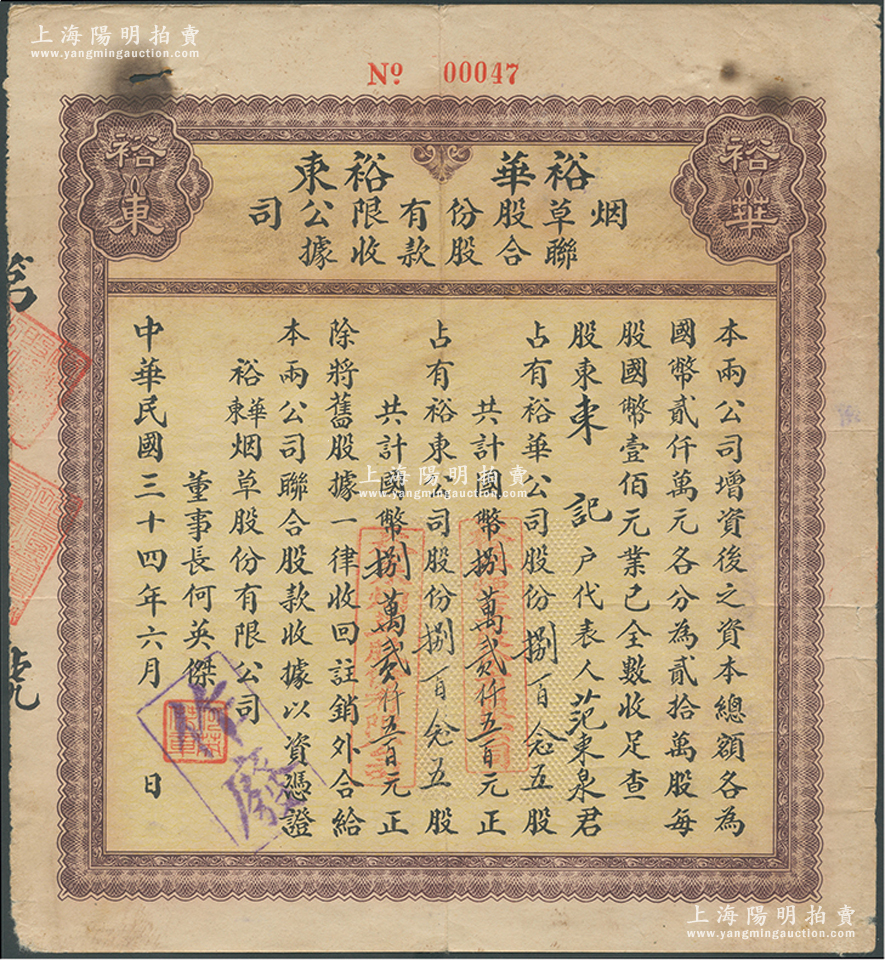 上海陽明拍賣
www.yangmingauction.com
No 00047
裕華
裕東
裕華 裕東
烟草股份有限公司
聯合股款收據
本兩公司增資後之資本總額各為
國幣貳仟萬元各分為貳拾萬股每
股國幣壹佰元業已全數收足查
股東東記户代表人范東泉君
占有裕華公司股份捌百念五股
共計國幣捌萬貳仟五百元正
占有裕東公司股份捌百念五股
共計國幣捌萬貳仟五百元正
除將舊股據一律收回註銷外合給
本兩公司聯合股款收據以資憑證
裕華東烟草股份有限公司
董事長何英傑
中華民國三十四年六月 日
作廢
號
上海陽明拍賣
www.yangmingauction.com
上海陽明拍賣
www.yangmingauction.com